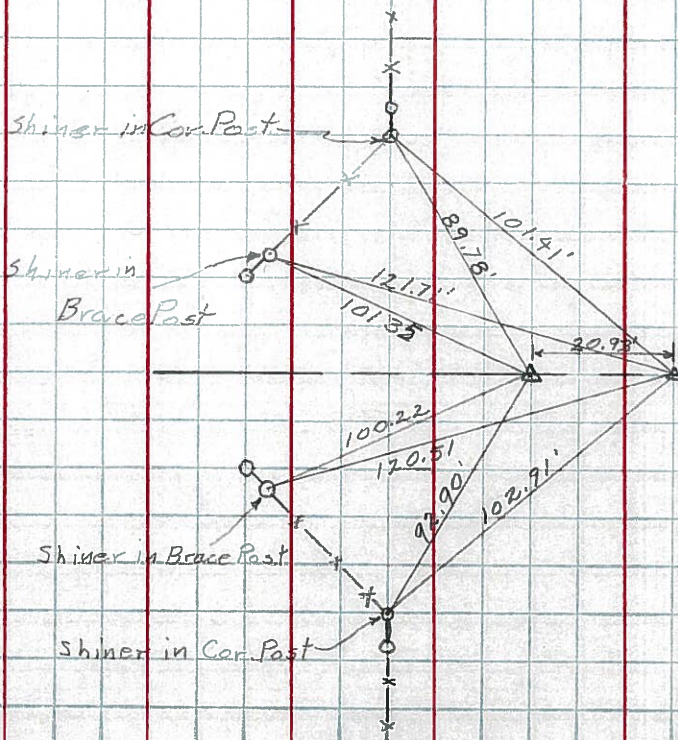 Shiner in Cor. Post
101.41'
89.78'
Shiner in
Brace Post
121.71'
101.35
20.93'
100.22
120.51'
92.90'
102.91'
Shiner in Brace Post
Shiner in Cor. Post